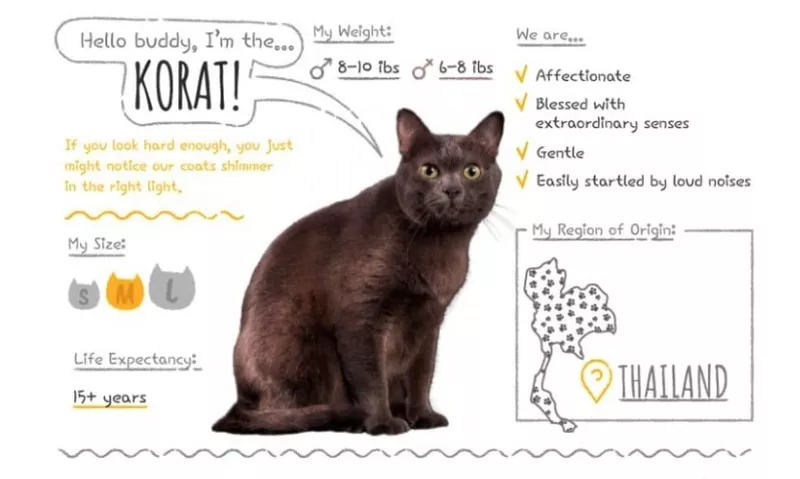 Hello buddy, I'm the...
KORAT!
If you look hard enough, you just
might notice our coats shimmer
in the right light.
My Size:
S M L
Life Expectancy:
15+ years
My Weight:
8-10 lbs 6-8 lbs
We are...
Affectionate
Blessed with
extraordinary senses
Gentle
Easily startled by loud noises
My Region of Origin:
THAILAND